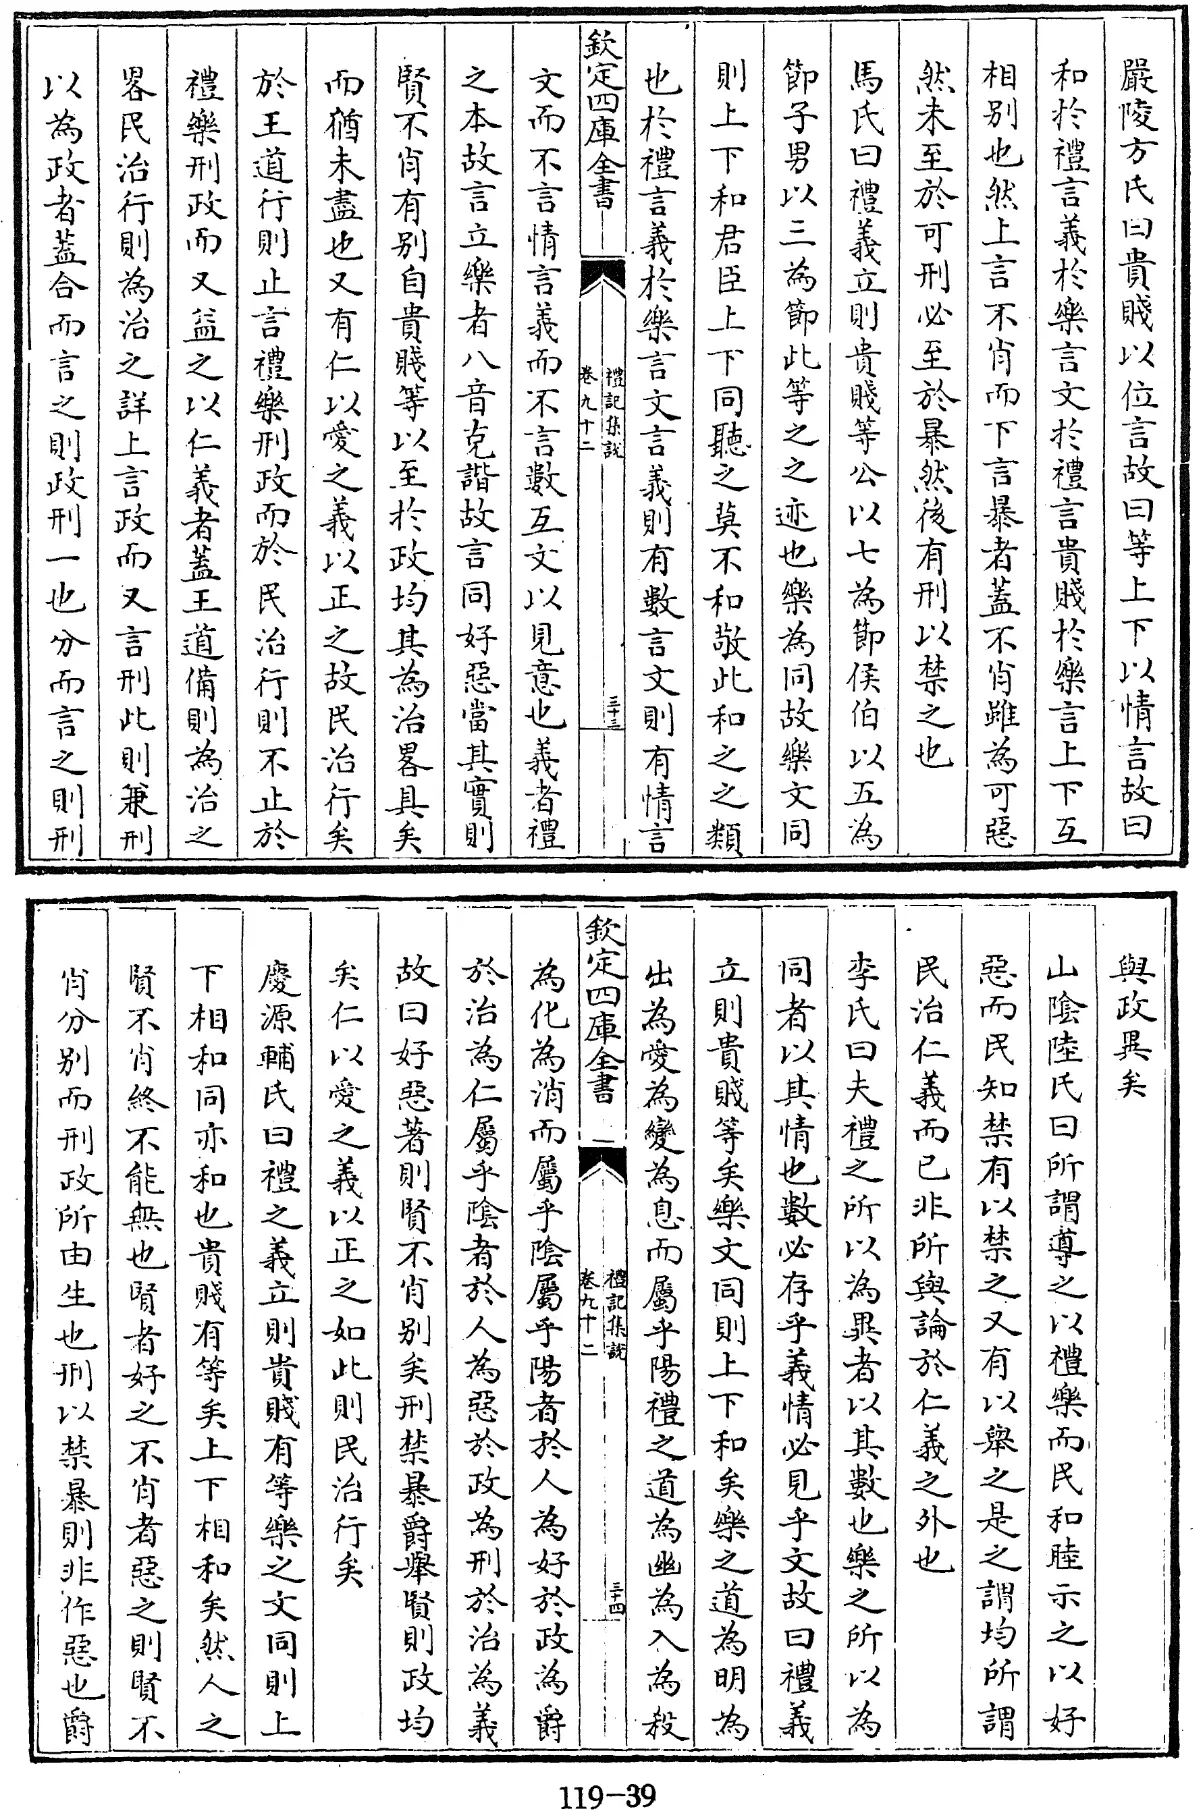 嚴陵方氏曰貴賤以位言故曰等上下以情言故曰
和於禮言義於樂言文於禮言貴賤於樂言上下互
相別也然上言不肖而下言暴者蓋不肖雖為可惡
然未至於可刑必至於暴然後有刑以禁之也
馬氏曰禮義立則貴賤等公以七為節侯伯以五為
節子男以三為節此等之之迹也樂為同故樂文同
則上下和君臣上下同聽之莫不和敬此和之之類
也於禮言義於樂言文言義則有數言文則有情言
欽定四庫全書
禮記集說
卷九十二
三十三
文而不言情言義而不言數互文以見意也義者禮
之本故言立樂者八音克諧故言同好惡當其實則
賢不肖有別自貴賤等以至於政均其為治畧具矣
而猶未盡也又有仁以愛之義以正之故民治行矣
於王道行則止言禮樂刑政而於民治行則不止於
禮樂刑政而又益之以仁義者蓋王道備則為治之
畧民治行則為治之詳上言政而又言刑此則兼刑
以為政者蓋合而言之則政刑一也分而言之則刑
與政異矣
山陰陸氏曰所謂導之以禮樂而民和睦示之以好
惡而民知禁有以禁之又有以舉之是之謂均所謂
民治仁義而已非所與論於仁義之外也
李氏曰夫禮之所以為異者以其數也樂之所以為
同者以其情也數必存乎義情必見乎文故曰禮義
立則貴賤等矣樂文同則上下和矣樂之道為明為
出為愛為變為息而屬乎陽禮之道為幽為入為殺
欽定四庫全書
禮記集說
卷九十二
三十四
為化為消而屬乎陰屬乎陽者於人為好於政為爵
於治為仁屬乎陰者於人為惡於政為刑於治為義
故曰好惡著則賢不肖別矣刑禁暴爵舉賢則政均
矣仁以愛之義以正之如此則民治行矣
慶源輔氏曰禮之義立則貴賤有等樂之文同則上
下相和同亦和也貴賤有等矣上下相和矣然人之
賢不肖終不能無也賢者好之不肖者惡之則賢不
肖分別而刑政所由生也刑以禁暴則非作惡也爵
119-39